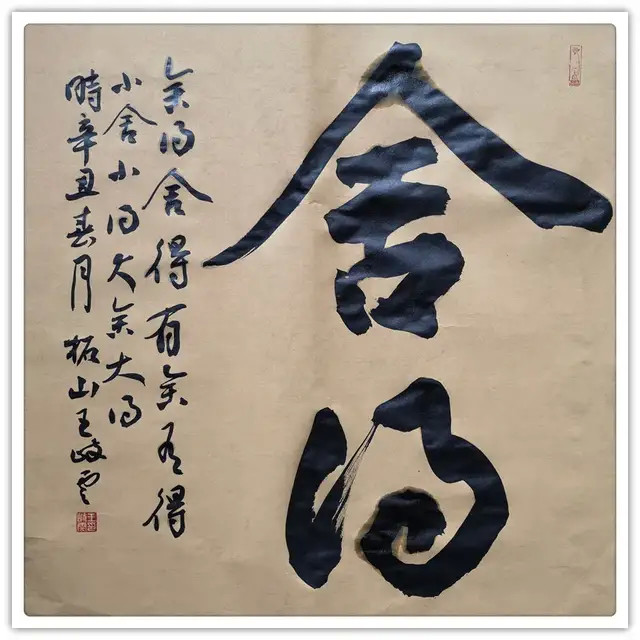 舍得
舍得舍得有舍有得
小舍小得大舍大得
時辛丑春月 柘山王岐雲